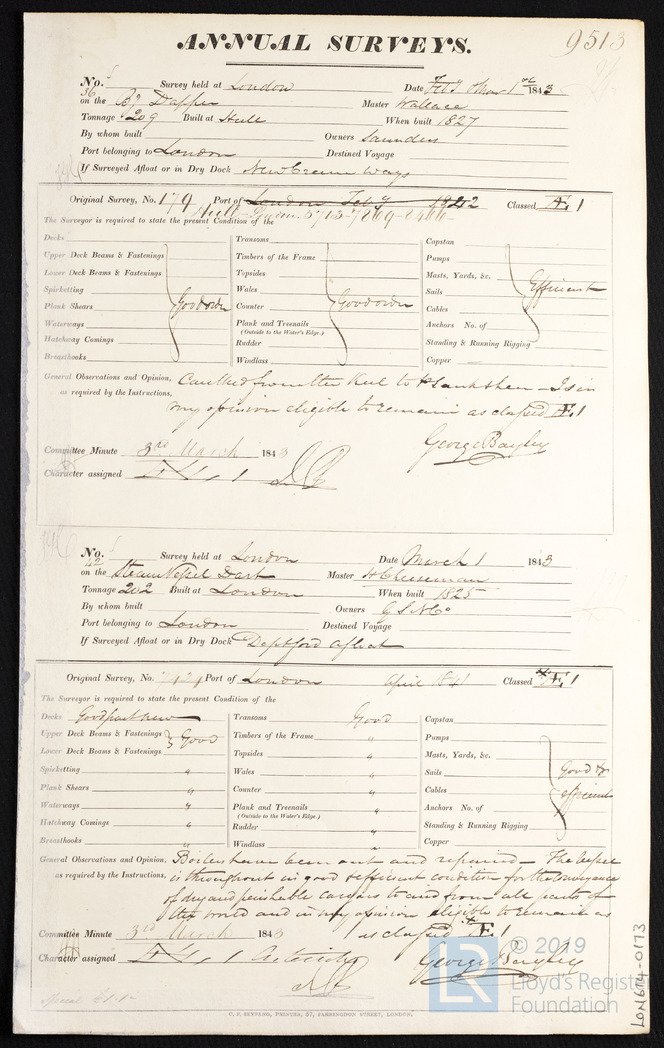 ANNUAL SURVEYS.
9513
No. 56 Survey held at London Date Feby & Mar 1st 1843
on the Bg Dapper Master Wallace
Tonnage 209 Built at Hull When built 1827
By whom built Owners Saunders
Port belonging to London Destined Voyage
If Surveyed Afloat or in Dry Dock New Crane Ways
Original Survey, No. 179 Port of London Feby 1842 Classed Æ 1
Hull London 5713-7869-8466-
The Surveyor is required to state the present Condition of the
Decks Transoms Capstan
Upper Deck Beams & Fastenings Timbers of the Frame Pumps
Lower Deck Beams & Fastenings Topsides Masts, Yards, &c.
Spirketting Wales Sails Efficient
Plank Shears Good Counter Good Cables
Waterways Plank and Treenails (Outside to the Water's Edge.) Anchors No. of
Hatchway Comings Rudder Standing & Running Rigging
Breasthooks Windlass Copper
General Observations and Opinion, Caulked from the Keel to Plankshear - Is in
as required by the Instructions, my opinion eligible to remain as classed Æ 1
George Bayley
Committee Minute 3rd March 1843
Character assigned Æ 1
No. 42 Survey held at London Date March 1 1843
on the Steam Vessel Dart Master
Tonnage 202 Built at London When built 1825
By whom built Owners G S N Co
Port belonging to London Destined Voyage
If Surveyed Afloat or in Dry Dock Deptford afloat
Original Survey, No. 7424 Port of London April 1841 Classed * Æ 1
The Surveyor is required to state the present Condition of the
Decks Good part new Transoms Good Capstan
Upper Deck Beams & Fastenings Good Timbers of the Frame " Pumps
Lower Deck Beams & Fastenings Topsides " Masts, Yards, &c.
Spirketting " Wales " Sails Good &
Plank Shears " Counter " Cables efficient
Waterways " Plank and Treenails " (Outside to the Water's Edge.) Anchors No. of
Hatchway Comings " Rudder Standing & Running Rigging
Breasthooks " Windlass " Copper
General Observations and Opinion, Boilers have been out and repaired - The Vessel
as required by the Instructions, is throughout in good & efficient condition for the conveyance
of dry and perishable cargoes to and from all parts of
the world and in my opinion eligible to remain as
Committee Minute 3rd March 1843 as classed * Æ 1
Character assigned Æ 1 Asterisk George Bayley
Special £1-1-
C. F. SEYFANG, PRINTER, 57, FARRINGDON STREET, LONDON.
LON614-0173
LR © 2019
Lloyd's Register
Foundation